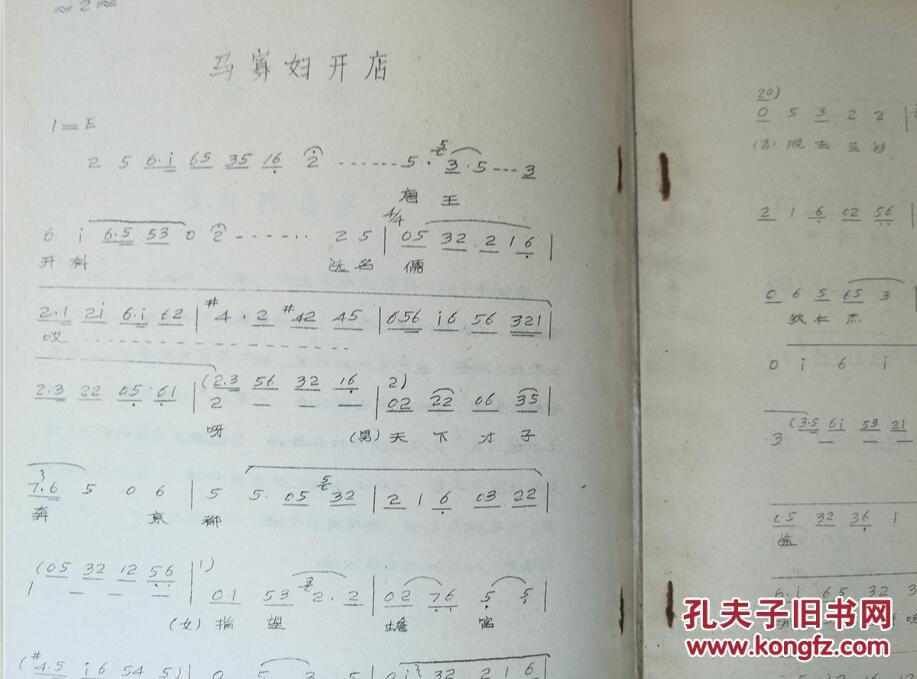 ≈2≈
马寡妇开店
1=E
2 5 6·i 65 35 16 2 ······ 5·· 5 3·5 --- 3
唐 王
4/4
6 i 6·5 53 0 2 -······· 2 5 | 05 32 2 1 6 |
开 科 选 名 儒
2·1 2i 6·i 62 | #4·2 #42 45 | 656 i6 56 321 |
哎
2·3 22 05· 61 | (2·3 56 32 16 | 2) 02 22 06 35 |
2 — — —
呀 (男) 天 下 才 子
7·6 5 0 6 | 5 5· 05 5 32 | 2 1 6 03 22 |
奔 京 都
(05 32 12 56 | 1) 01 53 3 2·2 | 02 76 5 5 |
1 — — —
(女) 指 望 蟾 宫
(#4·5 i6 54 5) | 0 5 3 5 | 0i 32 2 1 6 |
20)
0 5 3 2 2 |
(男) 脱 去
2 1 6 02 56 |
0 6 5 65 3 |
狄 仁 杰
0 i 6 i
3 (3·5 6i 53 21
— — —
05 32 36 1
6·i 65 32 3
孔夫子旧书网
www.kongfz.com